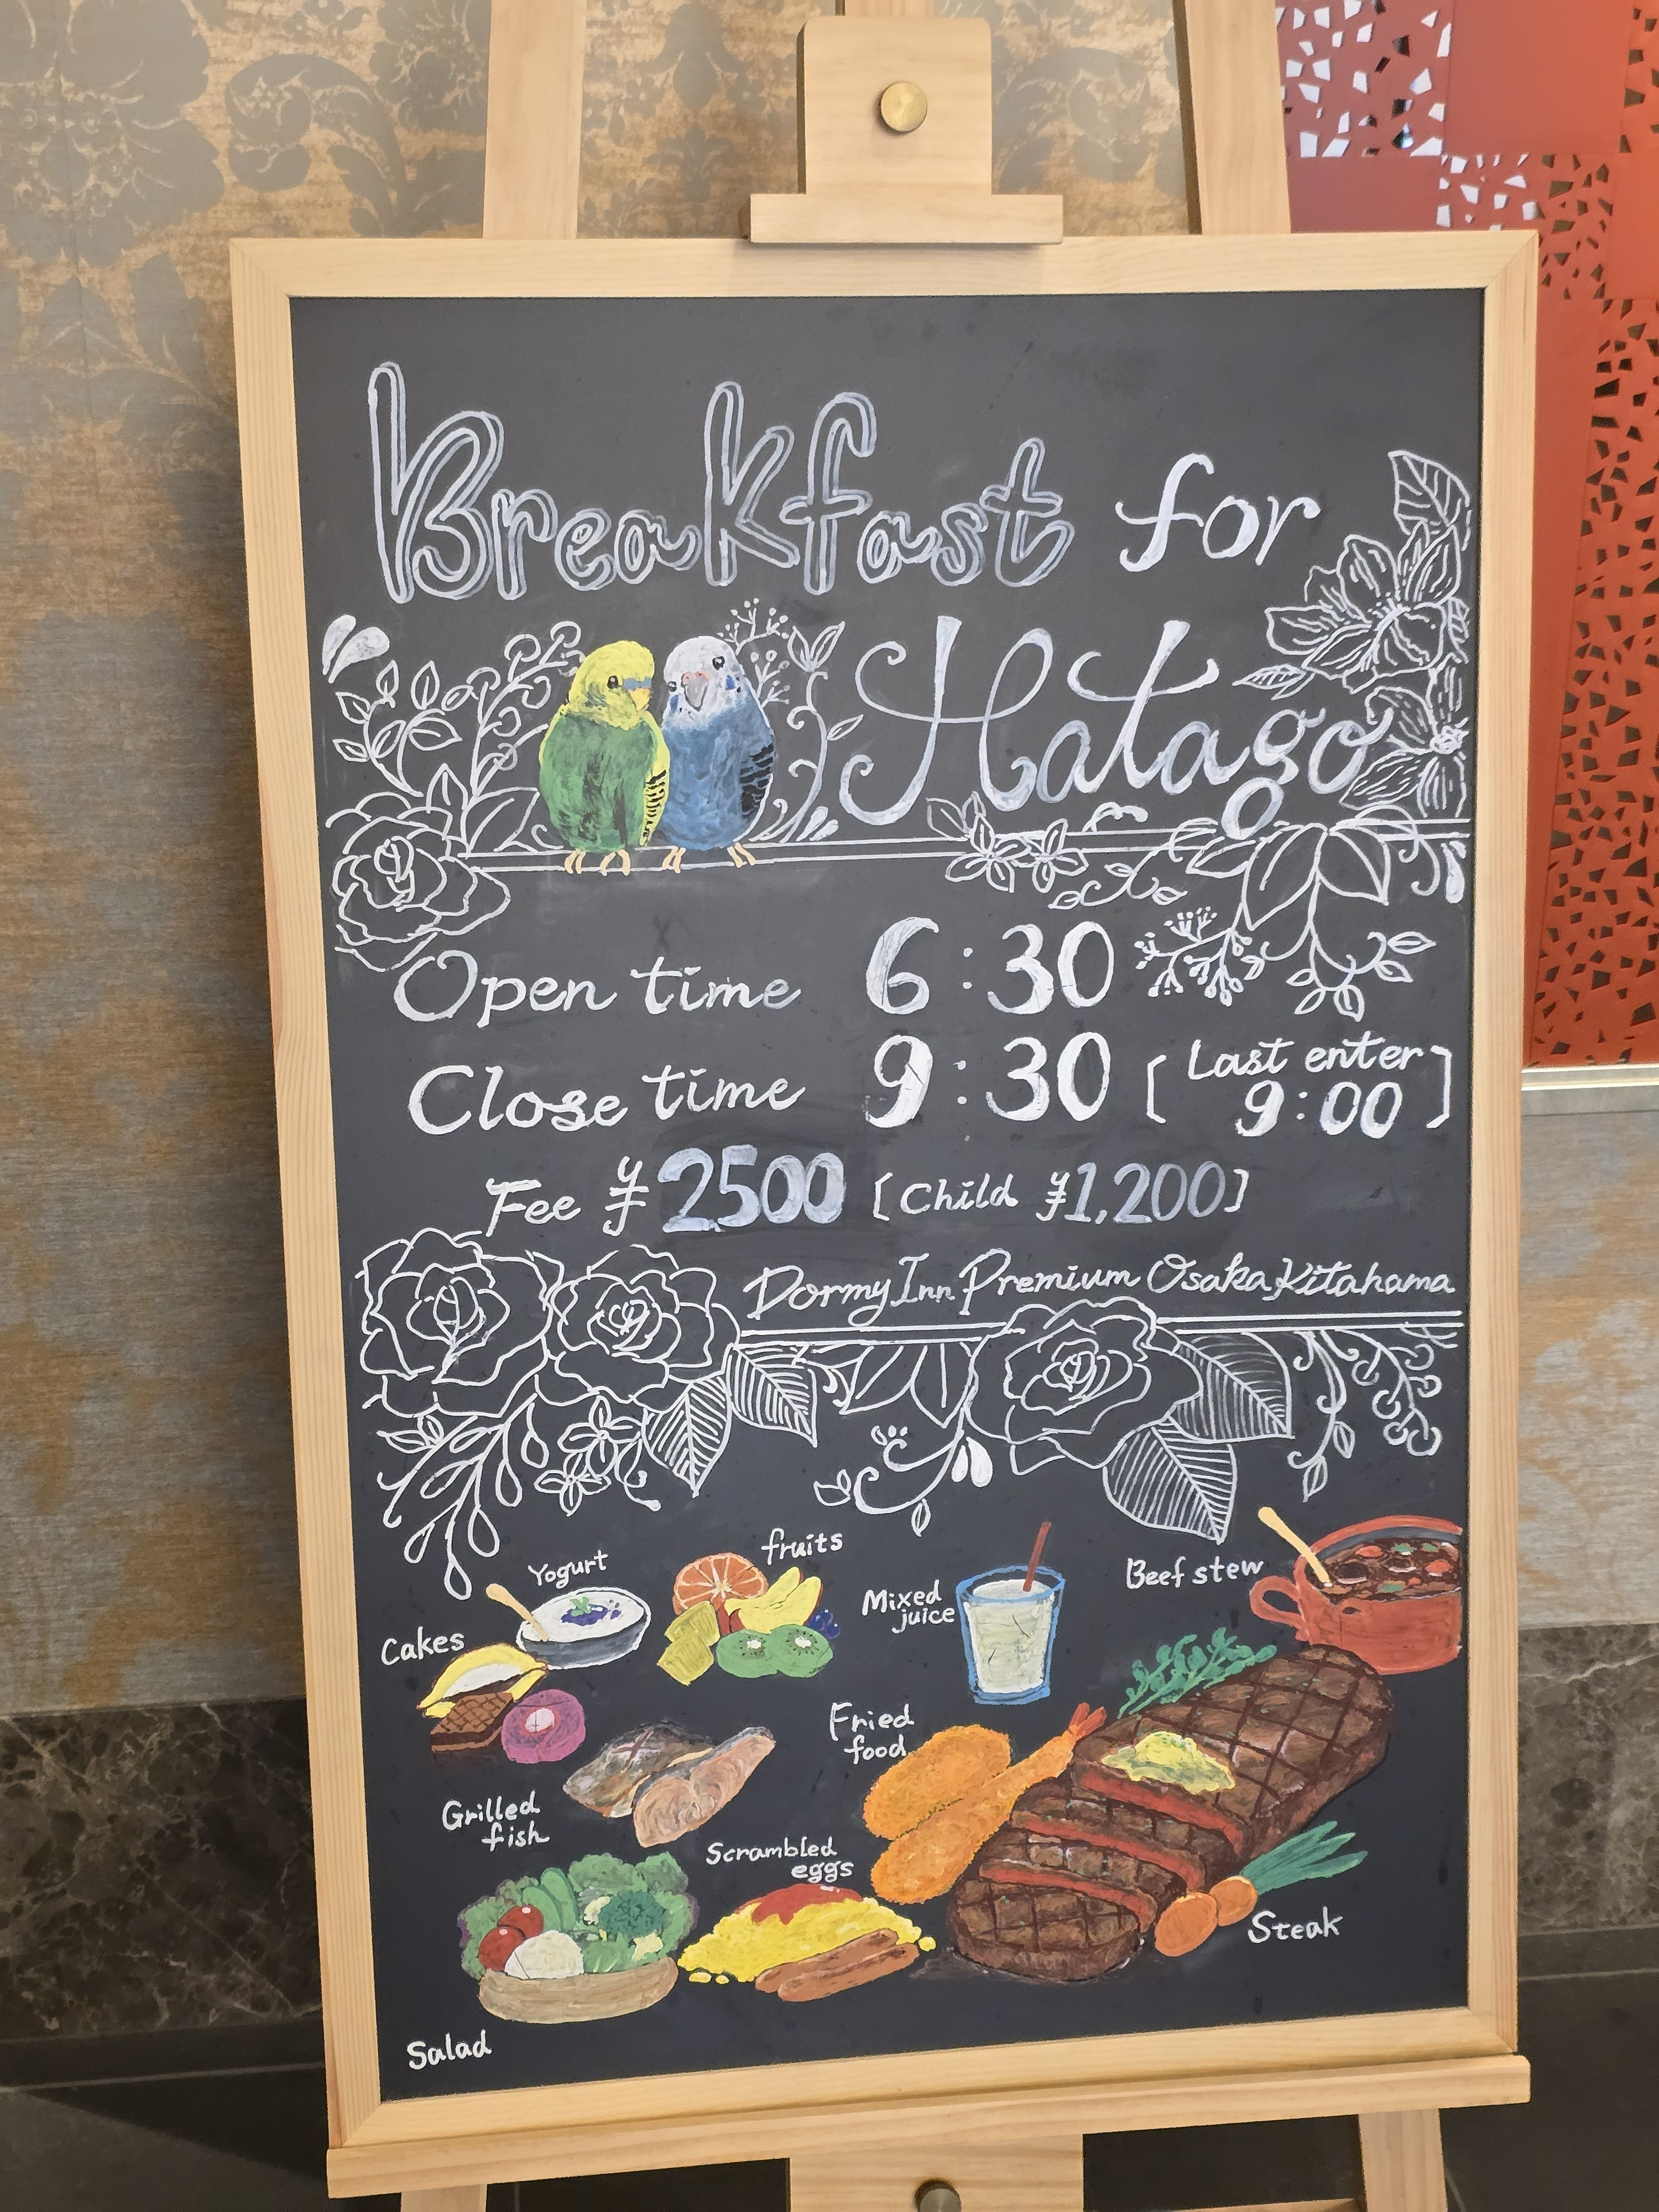 Breakfast for
Hatago
Open time 6:30
Close time 9:30 [Last enter 9:00]
Fee ¥2500 [Child ¥1,200]
Dormy Inn Premium Osaka Kitahama
Yogurt
fruits
Mixed
juice
Beef stew
Cakes
Fried
food
Grilled
fish
Scrambled
eggs
Steak
Salad